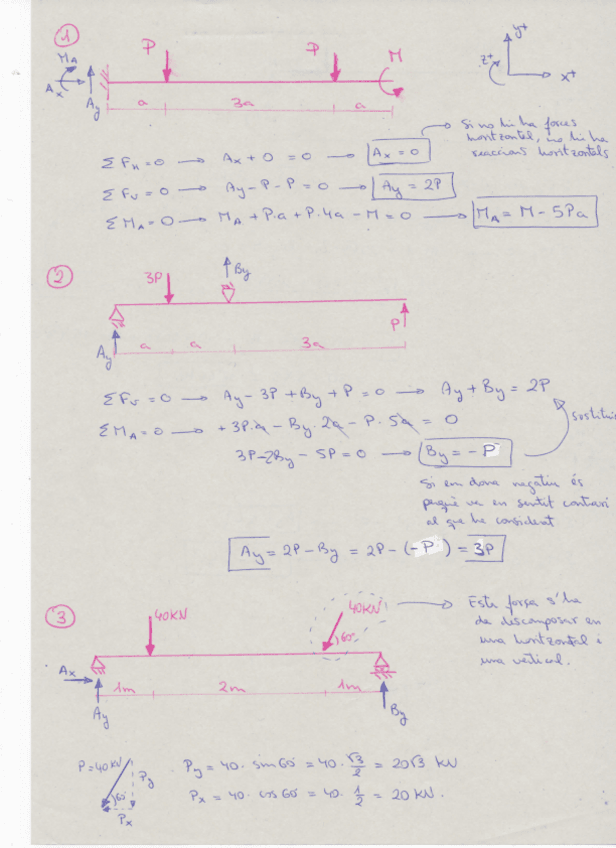 1
P P M
M_A
A_x
A_y
a 3a a
y+
z+
x+
Si no hi ha forces
horitzontal, no hi ha
reaccions horitzontals
ΣF_H=0 → A_x + 0 = 0 → A_x = 0
ΣF_V=0 → A_y - P - P = 0 → A_y = 2P
ΣM_A=0 → M_A + P·a + P·4a - M = 0 → M_A = M - 5Pa
2
3P B_y
P
A_y
a a 3a
ΣF_V=0 → A_y - 3P + B_y + P = 0 → A_y + B_y = 2P
ΣM_A=0 → +3P·a - B_y·2a - P·5a = 0
3P - 2B_y - 5P = 0 → B_y = -P
Si em dona negatiu és
perquè va en sentit contrari
al que he considerat
A_y = 2P - B_y = 2P - (-P) = 3P
3
40KN 40KN
60°
Esta força s'ha
de descomposar en
una horitzontal i
una vertical.
A_x
1m 2m 1m
A_y B_y
P=40KN
P_y
60°
P_x
P_y = 40· sin60 = 40· √3/2 = 20√3 KN
P_x = 40· cos60 = 40· 1/2 = 20 KN.